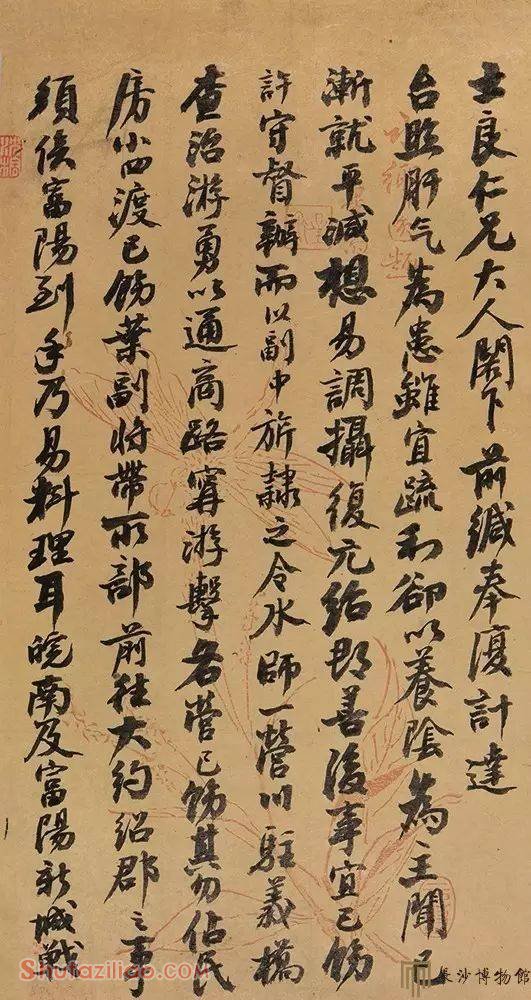 士良仁兄大人閣下前緘奉復計達
台照肝气為患雖宜疏利卻以養陰為主聞已
漸就平減想易調攝復元紹郡善後事宜已飭
許守督辦而以副中旂隸之令水師一營川駐義橋
查治游勇以通商路甯游擊各營已飭其勿佔民
房渡已飭葉副將帶所部前往大約紹郡之事
須俟富陽到手乃易料理耳皖南及富陽新城戰
Shufaziliao.com
長沙博物館